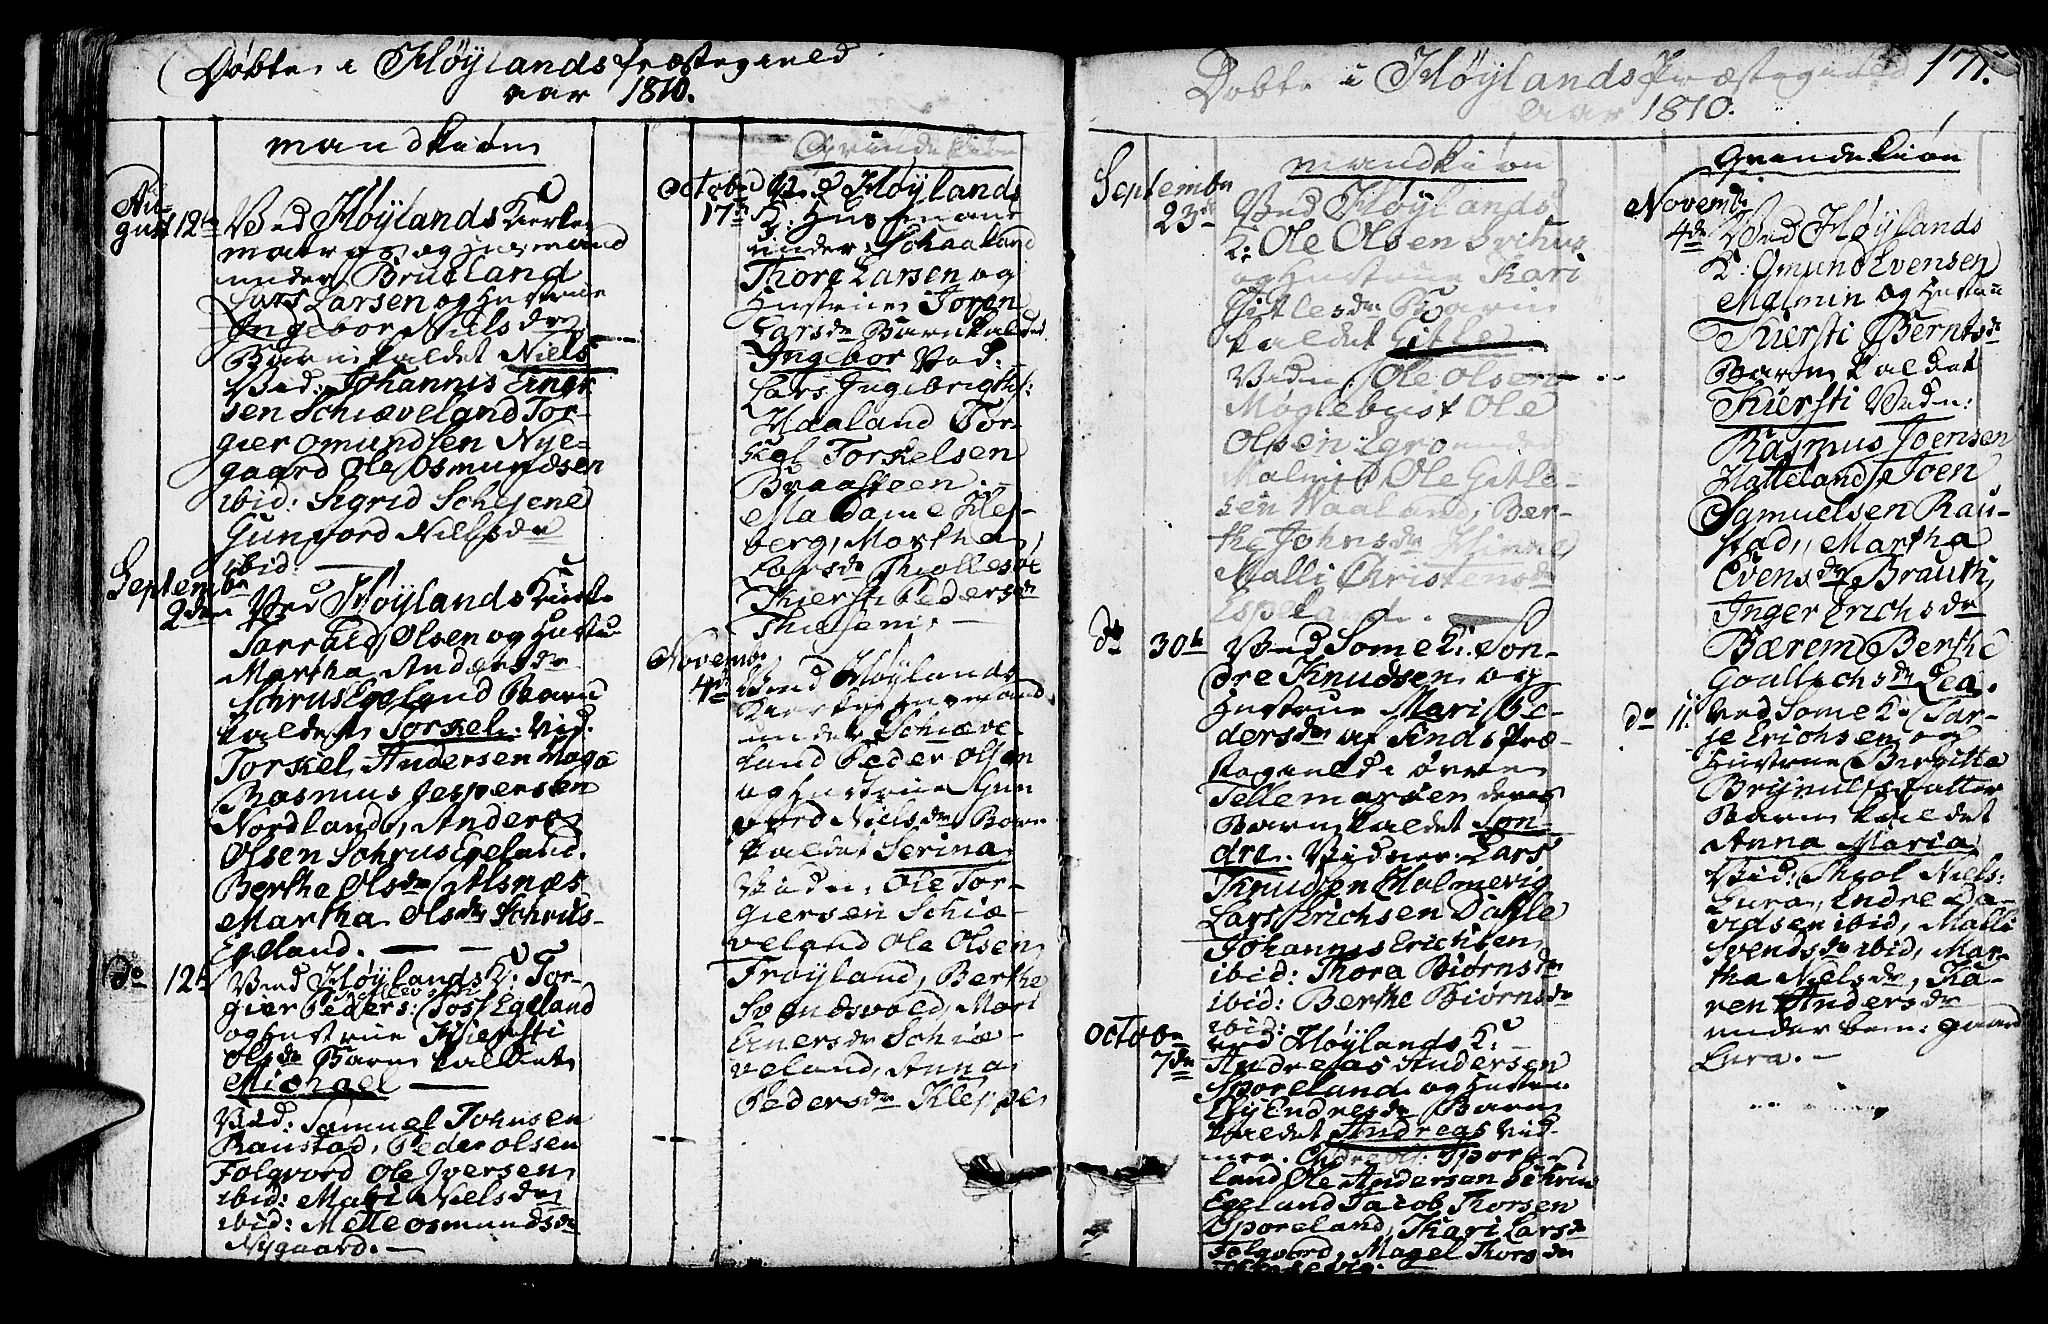 Døbte i Høylands Præstegield
aar 1810.
Mandkiøn
August 12te Ved Høylands Kierke
matros og Huusmand
under Brueland
Lars Larsen og Hustrue
Ingebor Nielsdr
Barn kaldet Niels
Vid: Johannis Einer
sen Schiæveland Tor-
gier Omundsen Nye-
gaard Ole Osmundsen
ibid: Sigrid
Gunvord Nielsdr
ibid:
Septembr
2den Ved Høylands Kierke
Olsen og Hustrue
Martha Andersdr
Schrus Egeland Barn
kaldet Torkel: Vid:
Torkel Andersen
Rasmus Jespersen
Nordland, Anders
Olsen Schrus Egeland.
Berthe Olsdr
Martha Olsdr Schrus-
Egeland.
do 12te Ved Høylands K: Tor-
gier Peders: Egeland
og Hustrue Kiersti
Olsdr Barn kaldet
Michael
Vid: Samuel Johnsen
Raustad, Peder Olsen
Folgvord Ole Iversen
ibid: Mari Nielsdr
ibid: Mette Osmundsdr
Nygaard.
Qvindekiøn
Octobr Ved Høylands
17de K: Huusmand
under Schaaland
Thore Larsen og
Hustrue Joren
Larsdr Barn kaldet
Ingebor Vid:
Lars Ingebrigths:
Haaland Tor-
kel Torkelsen
Braasteen.
Madame Klep-
berg, Martha
Larsdr
Kiersti Pedersdr
Novembr
4de Ved Høylands
Kierke Huusmand
under Schiæve-
land Peder Olsen
og Hustrue Gun
vord Nielsdr Barn
kaldet Serina
Vidn: Ole Tor-
giersen Schiæ-
veland Ole Olsen
Frøyland, Berthe
Svendsvold, Mari
Einersdr Schiæ-
veland, Anna
Pedersdr Kleppe
171.
Døbte i Høylands Præstegield
aar 1810.
Mandkiøn
Septembr Ved Høylands
23de K: Ole Olsen
og Hustrue Kari
Gitlesdr Barn
kaldet Gitle
Vidn: Ole Olsen
Ole
Olsen under
Malmin Ole Gitle-
sen Haaland, Ber-
the Johnsdr
Malli Christensdr
Espeland.
do 30te Ved Somme K: Son-
dre Knudsen og
Hustrue Mari Pe-
dersdr af
i øvre
Tellemarken deres
Barn kaldet Son-
dre. Vidner: Lars
Knudsen Malmevig
Lars Erichsen Dahle
Johannis Erichsen
ibid: Thora Biørnsdr
ibid: Berthe Biørnsdr
ibid:
Octobr Ved Høylands K:
7de Andreas Andersen
Sporeland og Hustrue
Endresdr Barn
kaldet Andreas Vid-
ner: Spore-
land Ole Andersen Schrus
Egeland Jacob Thorsen
Sporeland, Kari Larsdr
Folgvord, Magel Thorsdr
Qvindekiøn
Novembr
4de Ved Høylands
K: Omund Evensen
Malmin og Hustrue
Kiersti Berntsdr
Barn kaldet
Kiersti Vidn:
Rasmus Joensen
Hatteland, Joen
Samuelsen Rau-
stad, Martha
Evensdr Brauth,
Inger Erichsdr
Bærem Berthe
Lea.
do 11. Ved Somme K.
Erichsen og
Hustrue Birgitta
Brynulfsdatter
Barn kaldet
Anna Maria
Vid: Niels:
Lura, Endre Da-
vidsen ibid, Malli
Svendsdr ibid, Mar-
tha Nielsdr, Ka-
ren Andersdr
under bem: gaard
Lura.